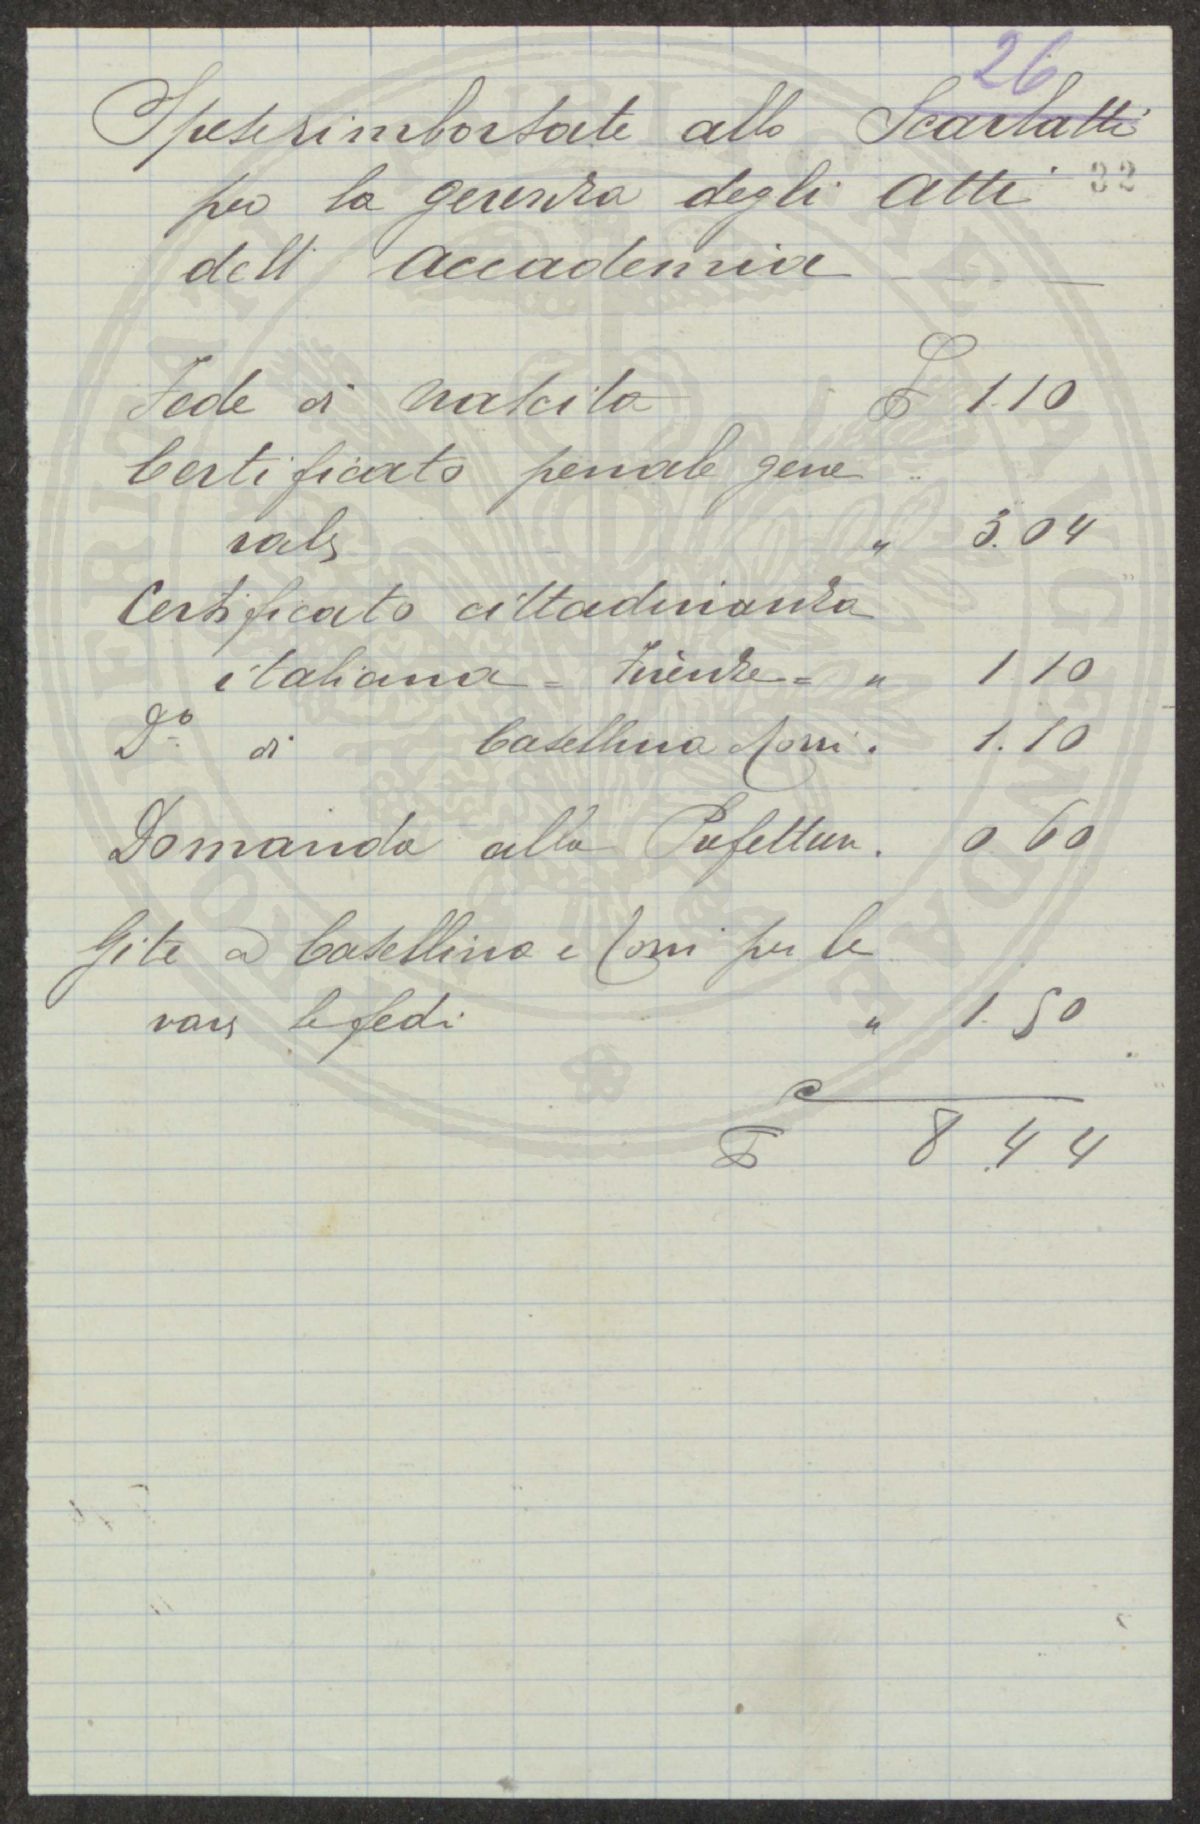 26
Spese rimborsate allo Scarlatti
per la gerenza degli Atti 32
dell' Accademia
Fede di Nascita £ 1.10
Certificato penale gene
rale " 3.04
Certificato cittadinanza
italiana = Firenze = " 1.10
Do di Casellina Torri . 1.10
Domanda alla Prefettura . 0.60
Gite a Casellina e Torri per le
vare le fedi " 1.50
£ 8.44